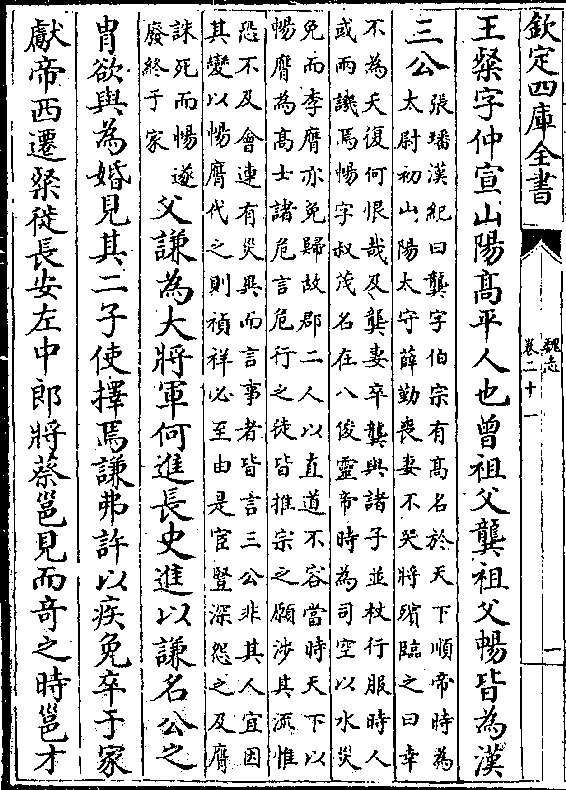 欽定四庫全書
魏志
卷二十一
一
王粲字仲宣山陽髙平人也曾祖父龔祖父暢皆為漢
三公
張璠漢紀曰龔字伯宗有髙名於天下順帝時為
太尉初山陽太守薛勤喪妻不哭將殯臨之曰幸
不為夭復何恨哉及龔妻卒龔與諸子並杖行服時人
或兩譏焉暢字叔茂名在八俊靈帝時為司空以水災
免而李膺亦免歸故郡二人以直道不容當時天下以
暢膺為髙士諸危言危行之徒皆推宗之願涉其流惟
恐不及會連有災異而言事者皆言三公非其人宜因
其變以暢膺代之則禎祥必至由是宦豎深怨之及膺
誅死而暢遂
廢終于家
父謙為大將軍何進長史進以謙名公之
胄欲與為婚見其二子使擇焉謙弗許以疾免卒于家
獻帝西遷粲徙長安左中郎將蔡邕見而奇之時邕才